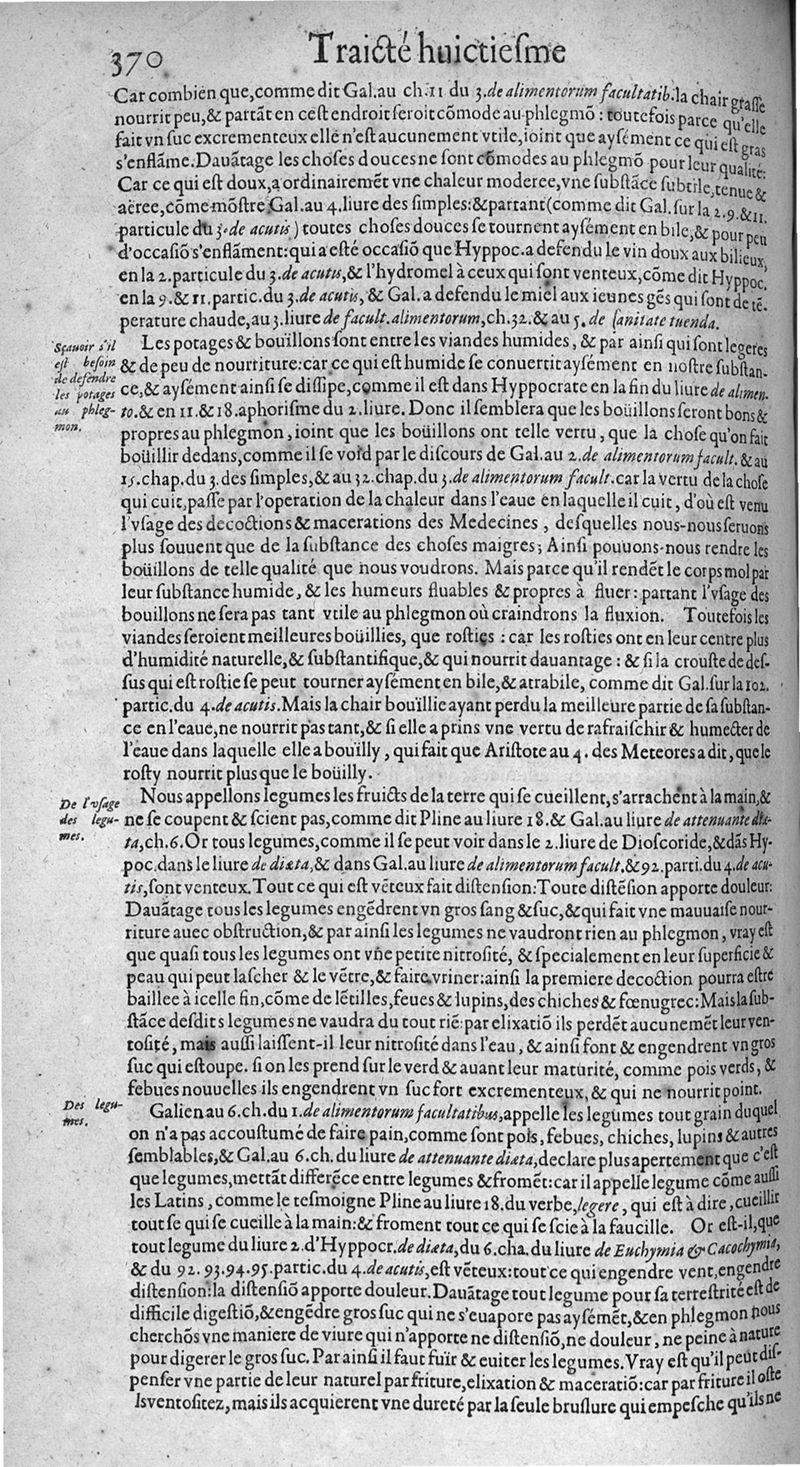 370
Traicté huictiesme
Car combien que,comme dit Gal.au ch.11 du 3.de alimentorum facultatib.la chair grasse
nourrit peu,& partãt en cest endroit seroit cõmode au phlegmõ : toutefois parce qu'elle
fait vn suc excrementeux elle n'est aucunement vtile,ioint que aysément ce qui est gras
s'enflãme.Dauãtage les choses douces ne sont cõmodes au phlegmõ pour leur qualité:
Car ce qui est doux,a ordinairemẽt vne chaleur moderee,vne substãce subtile,tenue &
aëree,cõme mõstre Gal.au 4.liure des simples:& partant (comme dit Gal.sur la 2.9.& 11.
particule du 3.de acutis) toutes choses douces se tournent aysément en bile,& pour peu
d'occasiõ s'enflãment:qui a esté occasiõ que Hyppoc.a defendu le vin doux aux bilieux,
en la 2.particule du 3.de acutis,& l'hydromel à ceux qui sont venteux,cõme dit Hyppoc.
en la 9.& 11.partic.du 3.de acutis, & Gal.a defendu le miel aux ieunes gẽs qui sont de tẽ-
perature chaude,au 3.liure de facult.alimentorum,ch.32.& au 5.de sanitate tuenda.
Sçauoir s'il
est besoin
de defendre
les potages
au phleg-
mon.
Les potages & bouïllons sont entre les viandes humides, & par ainsi qui sont legeres
& de peu de nourriture:car ce qui est humide se conuertit aysément en nostre substan-
ce,& aysément ainsi se dissipe,comme il est dans Hyppocrate en la fin du liure de alimen-
to.& en 11.& 18.aphorisme du 2.liure. Donc il semblera que les boüillons seront bons &
propres au phlegmon,ioint que les boüillons ont telle vertu, que la chose qu'on fait
boüillir dedans,comme il se void par le discours de Gal.au 2.de alimentorum facult.& au
15.chap.du 3.des simples,& au 32.chap.du 3.de alimentorum facult.car la vertu de la chose
qui cuit,passe par l'operation de la chaleur dans l'eaue en laquelle il cuit, d'où est venu
l'vsage des decoctions & macerations des Medecines, desquelles nous-nous seruons
plus souuent que de la substance des choses maigres; Ainsi pouuons-nous rendre les
boüillons de telle qualité que nous voudrons. Mais parce qu'il rendẽt le corps mol par
leur substance humide, & les humeurs fluables & propres à fluer: partant l'vsage des
bouillons ne sera pas tant vtile au phlegmon où craindrons la fluxion. Toutefois les
viandes seroient meilleures boüillies, que rosties : car les rosties ont en leur centre plus
d'humidité naturelle,& substantifique,& qui nourrit dauantage : & si la crouste de des-
sus qui est rostie se peut tourner aysément en bile,& atrabile, comme dit Gal.sur la 102.
partic.du 4.de acutis.Mais la chair bouïllie ayant perdu la meilleure partie de sa substan-
ce en l'eaue,ne nourrit pas tant,& si elle a prins vne vertu de rafraischir & humecter de
l'eaue dans laquelle elle a bouïlly, qui fait que Aristote au 4. des Meteores a dit,que le
rosty nourrit plus que le boüilly.
De l'vsage
des legu-
mes.
Nous appellons legumes les fruicts de la terre qui se cueillent,s'arrachent à la main,&
ne se coupent & scient pas,comme dit Pline au liure 18.& Gal.au liure de attenuante diæ-
ta,ch.6.Or tous legumes,comme il se peut voir dans le 2.liure de Dioscoride,& dãs Hy-
poc.dans le liure de diæta,& dans Gal.au liure de alimentorum facult.& 92.parti.du 4.de acu-
tis,sont venteux.Tout ce qui est vẽteux fait distension:Toute distẽsion apporte douleur:
Dauãtage tous les legumes engẽdrent vn gros sang & suc,& qui fait vne mauuaise nour-
riture auec obstruction,& par ainsi les legumes ne vaudront rien au phlegmon, vray est
que quasi tous les legumes ont vne petite nitrosité, & specialement en leur superficie &
peau qui peut lascher & le vẽtre,& faire vriner:ainsi la premiere decoction pourra estre
baillee à icelle fin,cõme de lẽtilles,feues & lupins,des chiches & fœnugrec:Mais la sub-
stãce desdits legumes ne vaudra du tout riẽ:par elixatiõ ils perdẽt aucunemẽt leur ven-
tosité, mais aussi laissent-il leur nitrosité dans l'eau, & ainsi font & engendrent vn gros
suc qui estoupe. si on les prend sur le verd & auant leur maturité, comme pois verds, &
febues nouuelles ils engendrent vn suc fort excrementeux,& qui ne nourrit point.
Des legu-
mes.
Galien au 6.ch.du 1.de alimentorum facultatibus,appelle les legumes tout grain duquel
on n'a pas accoustumé de faire pain,comme sont pois, febues, chiches, lupins & autres
semblables,& Gal.au 6.ch.du liure de attenuante diæta,declare plus apertement que c'est
que legumes,mettãt differẽce entre legumes & fromẽt:car il appelle legume cõme aussi
les Latins, comme le tesmoigne Pline au liure 18.du verbe,legere, qui est à dire,cueillir
tout se qui se cueille à la main:& froment tout ce qui se scie à la faucille. Or est-il,que
tout legume du liure 2.d'Hyppocr.de diæta,du 6.cha.du liure de Euchymia & Cacochymia,
& du 92.93.94.95.partic.du 4.de acutis,est vẽteux:tout ce qui engendre vent,engendre
distension:la distensiõ apporte douleur.Dauãtage tout legume pour sa terrestrité est de
difficile digestiõ,& engẽdre gros suc qui ne s'euapore pas aysémẽt,& en phlegmon nous
cherchõs vne maniere de viure qui n'apporte ne distensiõ,ne douleur, ne peine à nature
pour digerer le gros suc. Par ainsi il faut fuïr & euiter les legumes.Vray est qu'il peut dis-
penser vne partie de leur naturel par friture,elixation & maceratiõ:car par friture il oste
lsventositez,mais ils acquierent vne dureté par la seule bruslure qui empesche qu'ils ne